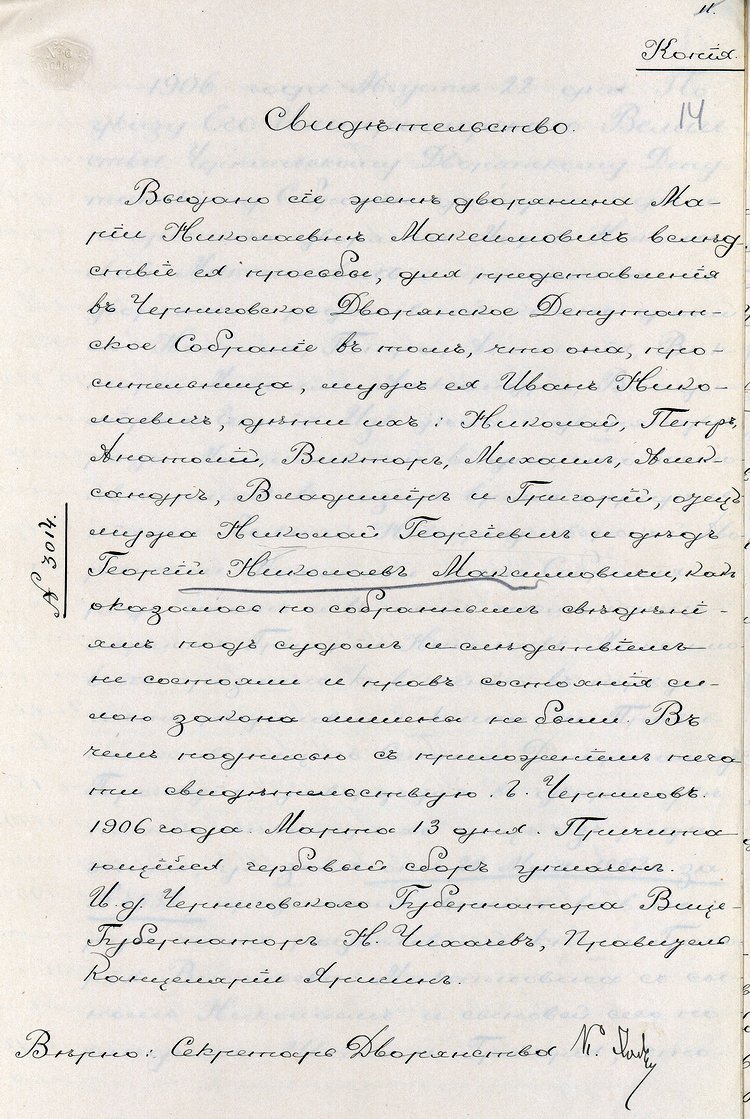 11.
Копія.
14
Свидѣтельство.
Выдано сіе женѣ дворянина Ма-
ріи Николаевнѣ Максимовичъ вслѣд
ствіе ея просьбы, для представленія
въ Черниговское Дворянское Депутат-
ское Собраніе въ томъ, что она, про-
сительница, мужъ ея Иванъ Нико-
лаевичъ, дѣти ихъ: Николай, Петръ,
Анатолій, Викторъ, Михаилъ, Алек-
сандръ, Владиміръ и Григорій, отецъ
мужа Николай Георгіевичъ и дѣдъ
Георгій Николаевъ Максимовичи, какъ
оказалось по собраннымъ свѣдѣні-
ямъ подъ судомъ и слѣдствіемъ
не состояли и правъ состоянія си-
лою закона лишены не были. Въ
чемъ подписью съ приложеніемъ печа
ти свидѣтельствую. Г. Черниговъ.
1906 года. Марта 13 дня. Причита
ющійся гербовый сборъ уплаченъ.
И. д. Черниговского Губернатора Вице-
Губернаторъ Н. Чихачевъ, Правитель
Канцеляріи
Вѣрно: Секретарь Дворянства
№ 3014.